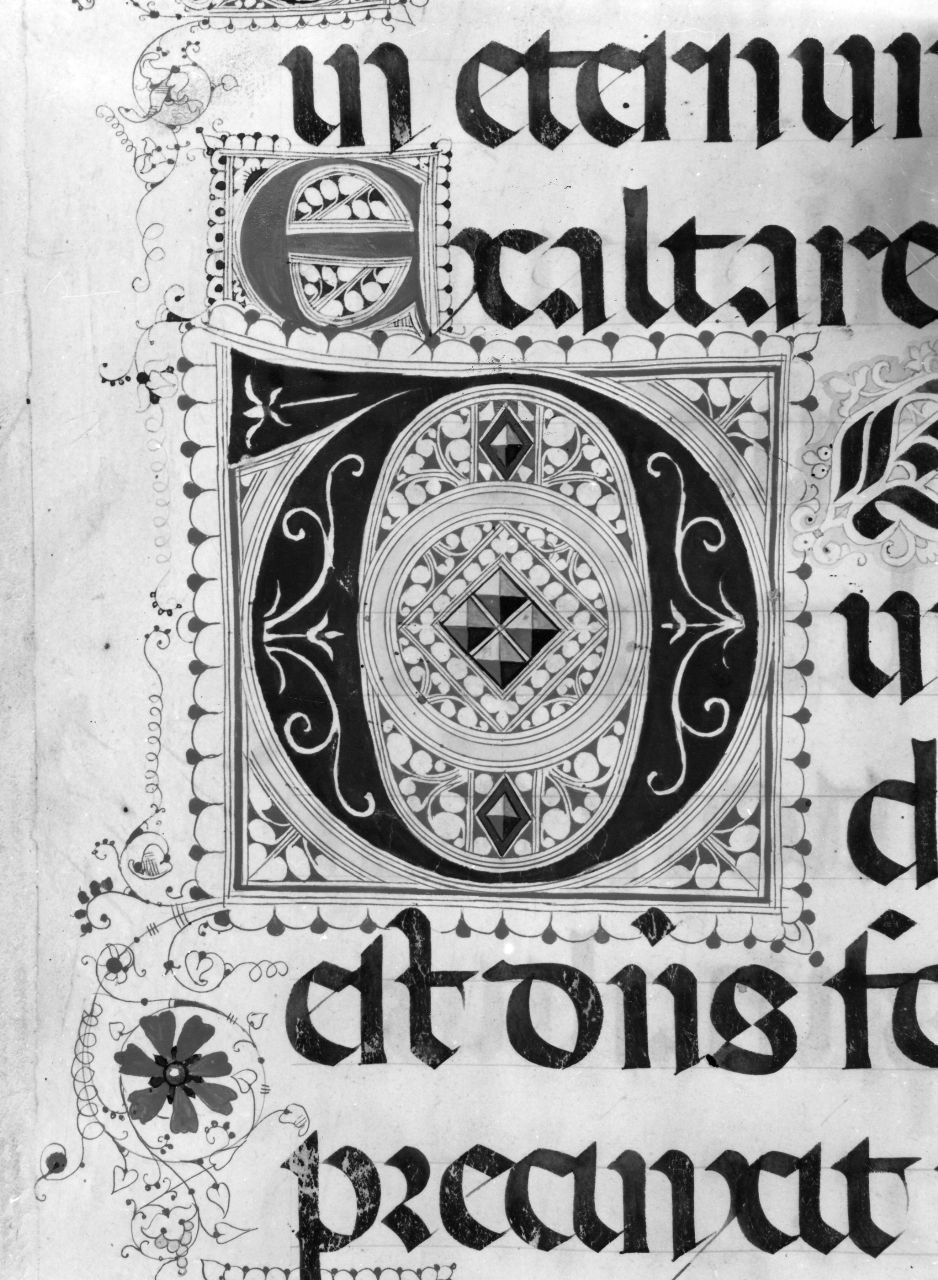 in eternum
Exaltare
D
in
d
est dñs fo
precinxit